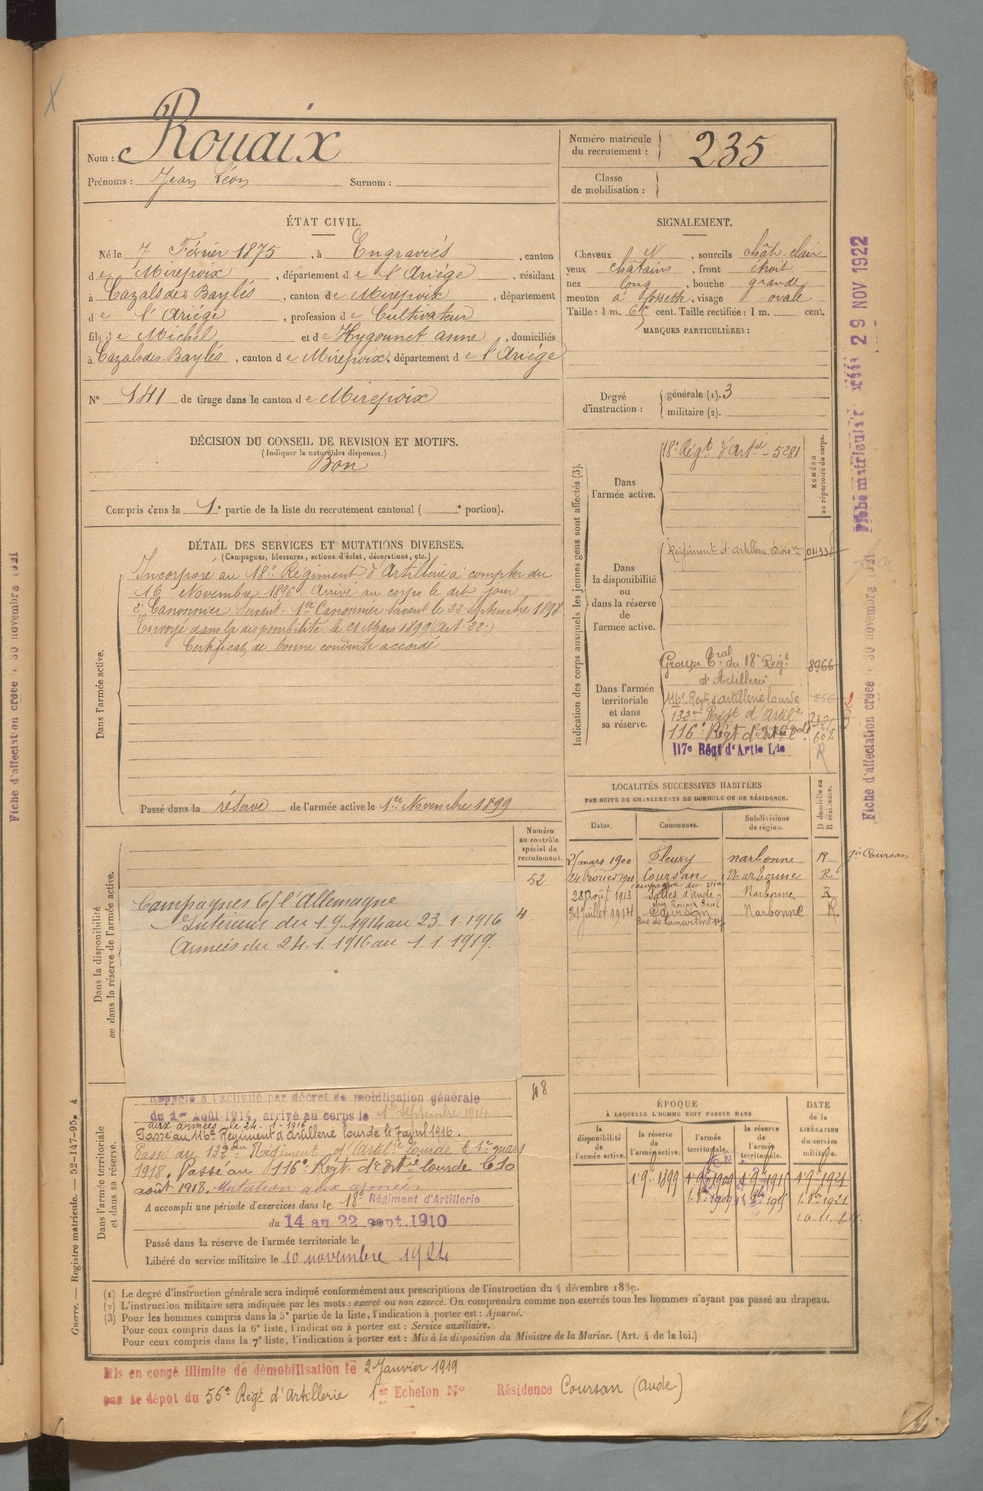 Nom : Rouaix
Prénoms : Jean Léon Surnom :
Numéro matricule du recrutement : 235
Classe de mobilisation :
ÉTAT CIVIL.
Né le 7 Février 1875, à Engraviès, canton
de Mirepoix, département de l'Ariège, résidant
à Cazals des Baylès, canton de Mirepoix, département
de l'Ariège, profession de Cultivateur
fils de Michel et de Hygounet anne, domiciliés
à Cazals des Baylès, canton de Mirepoix, département de l'Ariège
N° 141 de tirage dans le canton de Mirepoix
SIGNALEMENT.
Cheveux N, sourcils chât. clair
yeux châtains, front étroit
nez long, bouche grande
menton à fossette, visage ovale
Taille : 1 m. cent. Taille rectifiée : 1 m. cent.
MARQUES PARTICULIÈRES :
Degré d'instruction : générale (1). 3
militaire (2).
DÉCISION DU CONSEIL DE REVISION ET MOTIFS.
(Indiquer la nature des dispenses.)
Bon
Compris dans la 1e partie de la liste du recrutement cantonal ( e portion).
DÉTAIL DES SERVICES ET MUTATIONS DIVERSES.
(Campagnes, blessures, actions d'éclat, décorations, etc.)
Dans l'armée active.
Incorporé au 18e Régiment d'Artillerie à compter du
16 Novembre 1896. Arrivé au corps le dit jour
2e Canonnier Servant. 1er Canonnier Servant le 22 Septembre 1898
Envoyé dans la disponibilité le 21 Mars 1899 (Art. 22)
Certificat de bonne conduite accordé
Passé dans la réserve de l'armée active le 1er Novembre 1899
Indication des corps auxquels les jeunes gens sont affectés (3).
NUMÉRO au répertoire du corps.
Dans l'armée active.
18e Régt d'Artie 5281
Dans la disponibilité ou dans la réserve de l'armée active.
Régiment d'Artillerie
Dans l'armée territoriale et dans sa réserve.
Groupe Tral du 18e Régt
d'Artillerie 8966
116e Regt d'artillerie lourde
132e Régt d'Artie
116e Régt d'Artie
117e Régt d'Artie Lde
R
LOCALITÉS SUCCESSIVES HABITÉES
PAR SUITE DE CHANGEMENTS DE DOMICILE OU DE RÉSIDENCE.
Dates. Communes. Subdivisions de région. D domicile ou R résidence.
mars 1900 Fleury narbonne R
24 février 1901 Coursan Narbonne R
28 août 1913 Salles d'aude Narbonne R
31 juillet 1914 Coursan Narbonne R
Rue de Lamartine
Dans la disponibilité ou dans la réserve de l'armée active.
Numéro au contrôle spécial du recrutement.
52
Campagnes C/ l'Allemagne
Intérieur du 1.9.1914 au 23.1.1916
Armées du 24.1.1916 au 1.1.1919.
Dans l'armée territoriale et dans sa réserve.
Rappelé à l'activité par décret de mobilisation générale
du 1er Août 1914, arrivé au corps le 1er Septembre 1914
aux armées le 24-1-1916
Passé au 116e Régiment d'artillerie lourde le 7 avril 1916.
Passé au 132e Régiment d'Artie lourde le 1er mars
1918. Passé au 116e Régt d'Artie lourde le 10
août 1918. Mutation aux armées
A accompli une période d'exercices dans le 18e Régiment d'Artillerie
du 14 au 22 sept. 1910
Passé dans la réserve de l'armée territoriale le
Libéré du service militaire le 10 novembre 1924
ÉPOQUE
À LAQUELLE L'HOMME DOIT PASSER DANS
la disponibilité de l'armée active. la réserve de l'armée active. l'armée territoriale. la réserve de l'armée territoriale.
DATE de la LIBÉRATION du service militaire.
1-9-1899 1-9-1909 1-9-1915 1-9-1921
(1) Le degré d'instruction générale sera indiqué conformément aux prescriptions de l'instruction du 4 décembre 1889.
(2) L'instruction militaire sera indiquée par les mots : exercé ou non exercé. On comprendra comme non exercés tous les hommes n'ayant pas passé au drapeau.
(3) Pour les hommes compris dans la 5e partie de la liste, l'indication à porter est : Ajourné.
Pour ceux compris dans la 6e liste, l'indication à porter est : Service auxiliaire.
Pour ceux compris dans la 7e liste, l'indication à porter est : Mis à la disposition du Ministre de la Marine. (Art. 4 de la loi.)
Mis en congé illimité de démobilisation le 2 Janvier 1919
par le dépot du 56e Régt d'Artillerie 1er Echelon N° Résidence Coursan (Aude)
Guerre. — Registre matricule. — 52-147-95. 4
Fiche matriculaire 29 NOV 1922
Fiche d'affectation créée 30 novembre 1921
Fiche d'affectation créée 30 novembre 1921